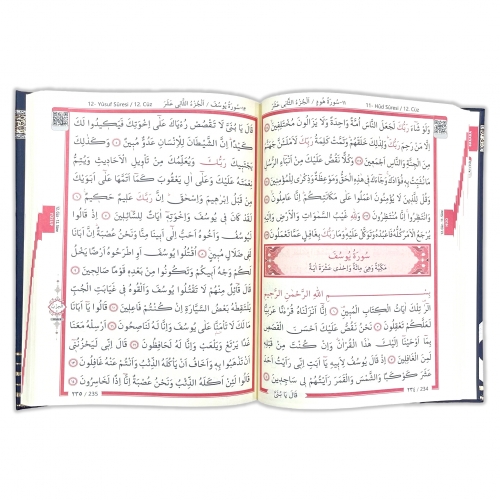 ١١-سُورَةُ هُودٍ / اَلْجُزْءُ الثَّانِي عَشَرَ 11- Hûd Sûresi / 12. Cüz
وَلَوْ شَاءَ رَبُّكَ لَجَعَلَ النَّاسَ أُمَّةً وَاحِدَةً وَلَا يَزَالُونَ مُخْتَلِفِينَ
إِلَّا مَنْ رَحِمَ رَبُّكَ وَلِذٰلِكَ خَلَقَهُمْ وَتَمَّتْ كَلِمَةُ رَبِّكَ لَأَمْلَـَٔنَّ جَهَنَّمَ
مِنَ الْجِنَّةِ وَالنَّاسِ أَجْمَعِينَ وَكُلًّا نَقُصُّ عَلَيْكَ مِنْ أَنْبَاءِ الرُّسُلِ
مَا نُثَبِّتُ بِهِ فُؤَادَكَ وَجَاءَكَ فِي هٰذِهِ الْحَقُّ وَمَوْعِظَةٌ وَذِكْرٰى لِلْمُؤْمِنِينَ
وَقُلْ لِلَّذِينَ لَا يُؤْمِنُونَ اعْمَلُوا عَلٰى مَكَانَتِكُمْ إِنَّا عَامِلُونَ
وَانْتَظِرُوا إِنَّا مُنْتَظِرُونَ وَلِلّٰهِ غَيْبُ السَّمٰوَاتِ وَالْأَرْضِ وَإِلَيْهِ
يُرْجَعُ الْأَمْرُ كُلُّهُ فَاعْبُدْهُ وَتَوَكَّلْ عَلَيْهِ وَمَا رَبُّكَ بِغَافِلٍ عَمَّا تَعْمَلُونَ
سُورَةُ يُوسُفَ
مَكِّيَّةٌ وَهِيَ مِائَةٌ وَإِحْدٰى عَشْرَةَ اٰيَةً
بِسْمِ اللّٰهِ الرَّحْمٰنِ الرَّحِيمِ
الٓرٰ تِلْكَ اٰيَاتُ الْكِتَابِ الْمُبِينِ إِنَّا أَنْزَلْنَاهُ قُرْاٰنًا عَرَبِيًّا
لَعَلَّكُمْ تَعْقِلُونَ نَحْنُ نَقُصُّ عَلَيْكَ أَحْسَنَ الْقَصَصِ
بِمَا أَوْحَيْنَا إِلَيْكَ هٰذَا الْقُرْاٰنَ وَإِنْ كُنْتَ مِنْ قَبْلِهِ
لَمِنَ الْغَافِلِينَ إِذْ قَالَ يُوسُفُ لِأَبِيهِ يَا أَبَتِ إِنِّي رَأَيْتُ أَحَدَ
عَشَرَ كَوْكَبًا وَالشَّمْسَ وَالْقَمَرَ رَأَيْتُهُمْ لِي سَاجِدِينَ
قَالَ يَا بُنَيَّ
٢٣٤ / 234
12- Yûsuf Sûresi / 12. Cüz ١٢-سُورَةُ يُوسُفَ / اَلْجُزْءُ الثَّانِي عَشَرَ
قَالَ يَا بُنَيَّ لَا تَقْصُصْ رُءْيَاكَ عَلٰى إِخْوَتِكَ فَيَكِيدُوا لَكَ
كَيْدًا إِنَّ الشَّيْطَانَ لِلْإِنْسَانِ عَدُوٌّ مُبِينٌ وَكَذٰلِكَ
يَجْتَبِيكَ رَبُّكَ وَيُعَلِّمُكَ مِنْ تَأْوِيلِ الْأَحَادِيثِ وَيُتِمُّ
نِعْمَتَهُ عَلَيْكَ وَعَلٰى اٰلِ يَعْقُوبَ كَمَا أَتَمَّهَا عَلٰى أَبَوَيْكَ
مِنْ قَبْلُ إِبْرٰهِيمَ وَإِسْحٰقَ إِنَّ رَبَّكَ عَلِيمٌ حَكِيمٌ
لَقَدْ كَانَ فِي يُوسُفَ وَإِخْوَتِهِ اٰيَاتٌ لِلسَّائِلِينَ إِذْ قَالُوا
لَيُوسُفُ وَأَخُوهُ أَحَبُّ إِلٰى أَبِينَا مِنَّا وَنَحْنُ عُصْبَةٌ إِنَّ أَبَانَا
لَفِي ضَلَالٍ مُبِينٍ اُقْتُلُوا يُوسُفَ أَوِ اطْرَحُوهُ أَرْضًا يَخْلُ
لَكُمْ وَجْهُ أَبِيكُمْ وَتَكُونُوا مِنْ بَعْدِهِ قَوْمًا صَالِحِينَ
قَالَ قَائِلٌ مِنْهُمْ لَا تَقْتُلُوا يُوسُفَ وَأَلْقُوهُ فِي غَيَابَتِ الْجُبِّ
يَلْتَقِطْهُ بَعْضُ السَّيَّارَةِ إِنْ كُنْتُمْ فَاعِلِينَ قَالُوا يَا أَبَانَا
مَا لَكَ لَا تَأْمَنَّا عَلٰى يُوسُفَ وَإِنَّا لَهُ لَنَاصِحُونَ أَرْسِلْهُ مَعَنَا
غَدًا يَرْتَعْ وَيَلْعَبْ وَإِنَّا لَهُ لَحَافِظُونَ قَالَ إِنِّي لَيَحْزُنُنِي
أَنْ تَذْهَبُوا بِهِ وَأَخَافُ أَنْ يَأْكُلَهُ الذِّئْبُ وَأَنْتُمْ عَنْهُ غَافِلُونَ
قَالُوا لَئِنْ أَكَلَهُ الذِّئْبُ وَنَحْنُ عُصْبَةٌ إِنَّا إِذًا لَخَاسِرُونَ
٢٣٥ / 235